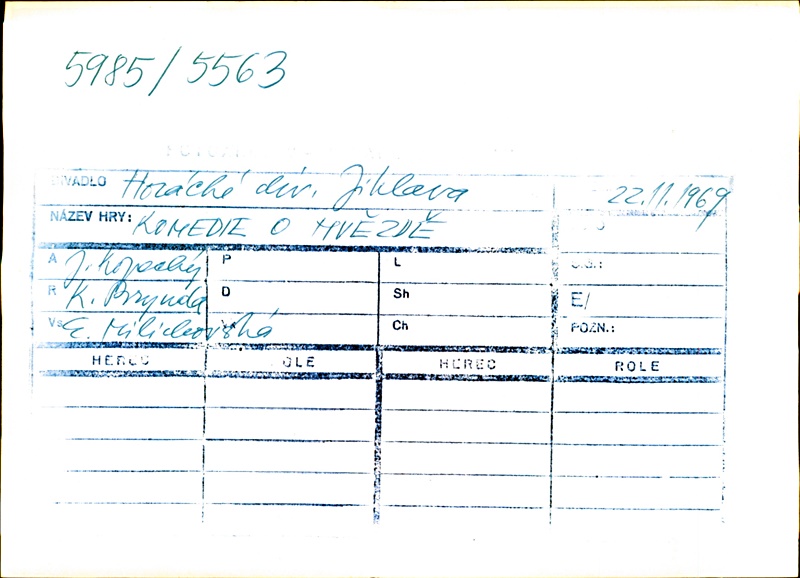 5985/5563
DIVADLO Horácké div. Jihlava 22.11.1969
NÁZEV HRY: KOMEDIE O HVĚZDĚ
A J. Kopecký P L
R K. Brynda D Sh E/
Vs E. Milichovská Ch POZN.:
HEREC ROLE HEREC ROLE